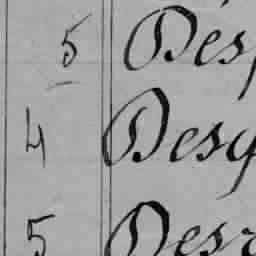 5 Des
4 Desq
5 Des